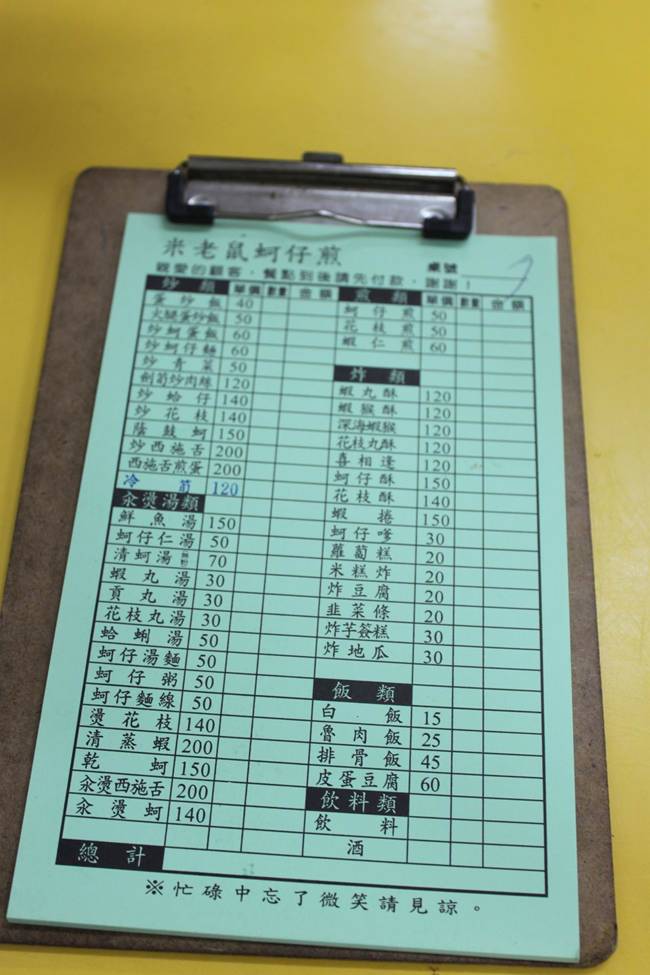 米老鼠蚵仔煎
桌號 7
親愛的顧客，餐點到後請先付款，謝謝！
炒類 單價 數量 金額
蛋炒飯 40
火腿蛋炒飯 50
炒蚵蛋飯 60
炒蚵仔麵 60
炒青菜 50
劍筍炒肉絲 120
炒蛤仔 140
炒花枝 140
蔭鼓蚵 150
炒西施舌 200
西施舌煎蛋 200
冷筍 120
汆燙湯類
鮮魚湯 150
蚵仔仁湯 50
清蚵湯 70
蝦丸湯 30
貢丸湯 30
花枝丸湯 30
蛤蜊湯 50
蚵仔湯麵 50
蚵仔粥 50
蚵仔麵線 50
燙花枝 140
清蒸蝦 200
乾蚵 150
汆燙西施舌 200
汆燙蚵 140
總計
煎類 單價 數量 金額
蚵仔煎 50
花枝煎 50
蝦仁煎 60
炸類
蝦丸酥 120
蝦猴酥 120
深海蝦猴 120
花枝丸酥 120
喜相逢 120
蚵仔酥 150
花枝酥 140
蝦捲 150
蚵仔嗲 30
蘿蔔糕 20
米糕炸 20
炸豆腐 20
韭菜條 20
炸芋簽糕 30
炸地瓜 30
飯類
白飯 15
魯肉飯 25
排骨飯 45
皮蛋豆腐 60
飲料類
飲料
酒
※忙碌中忘了微笑請見諒。